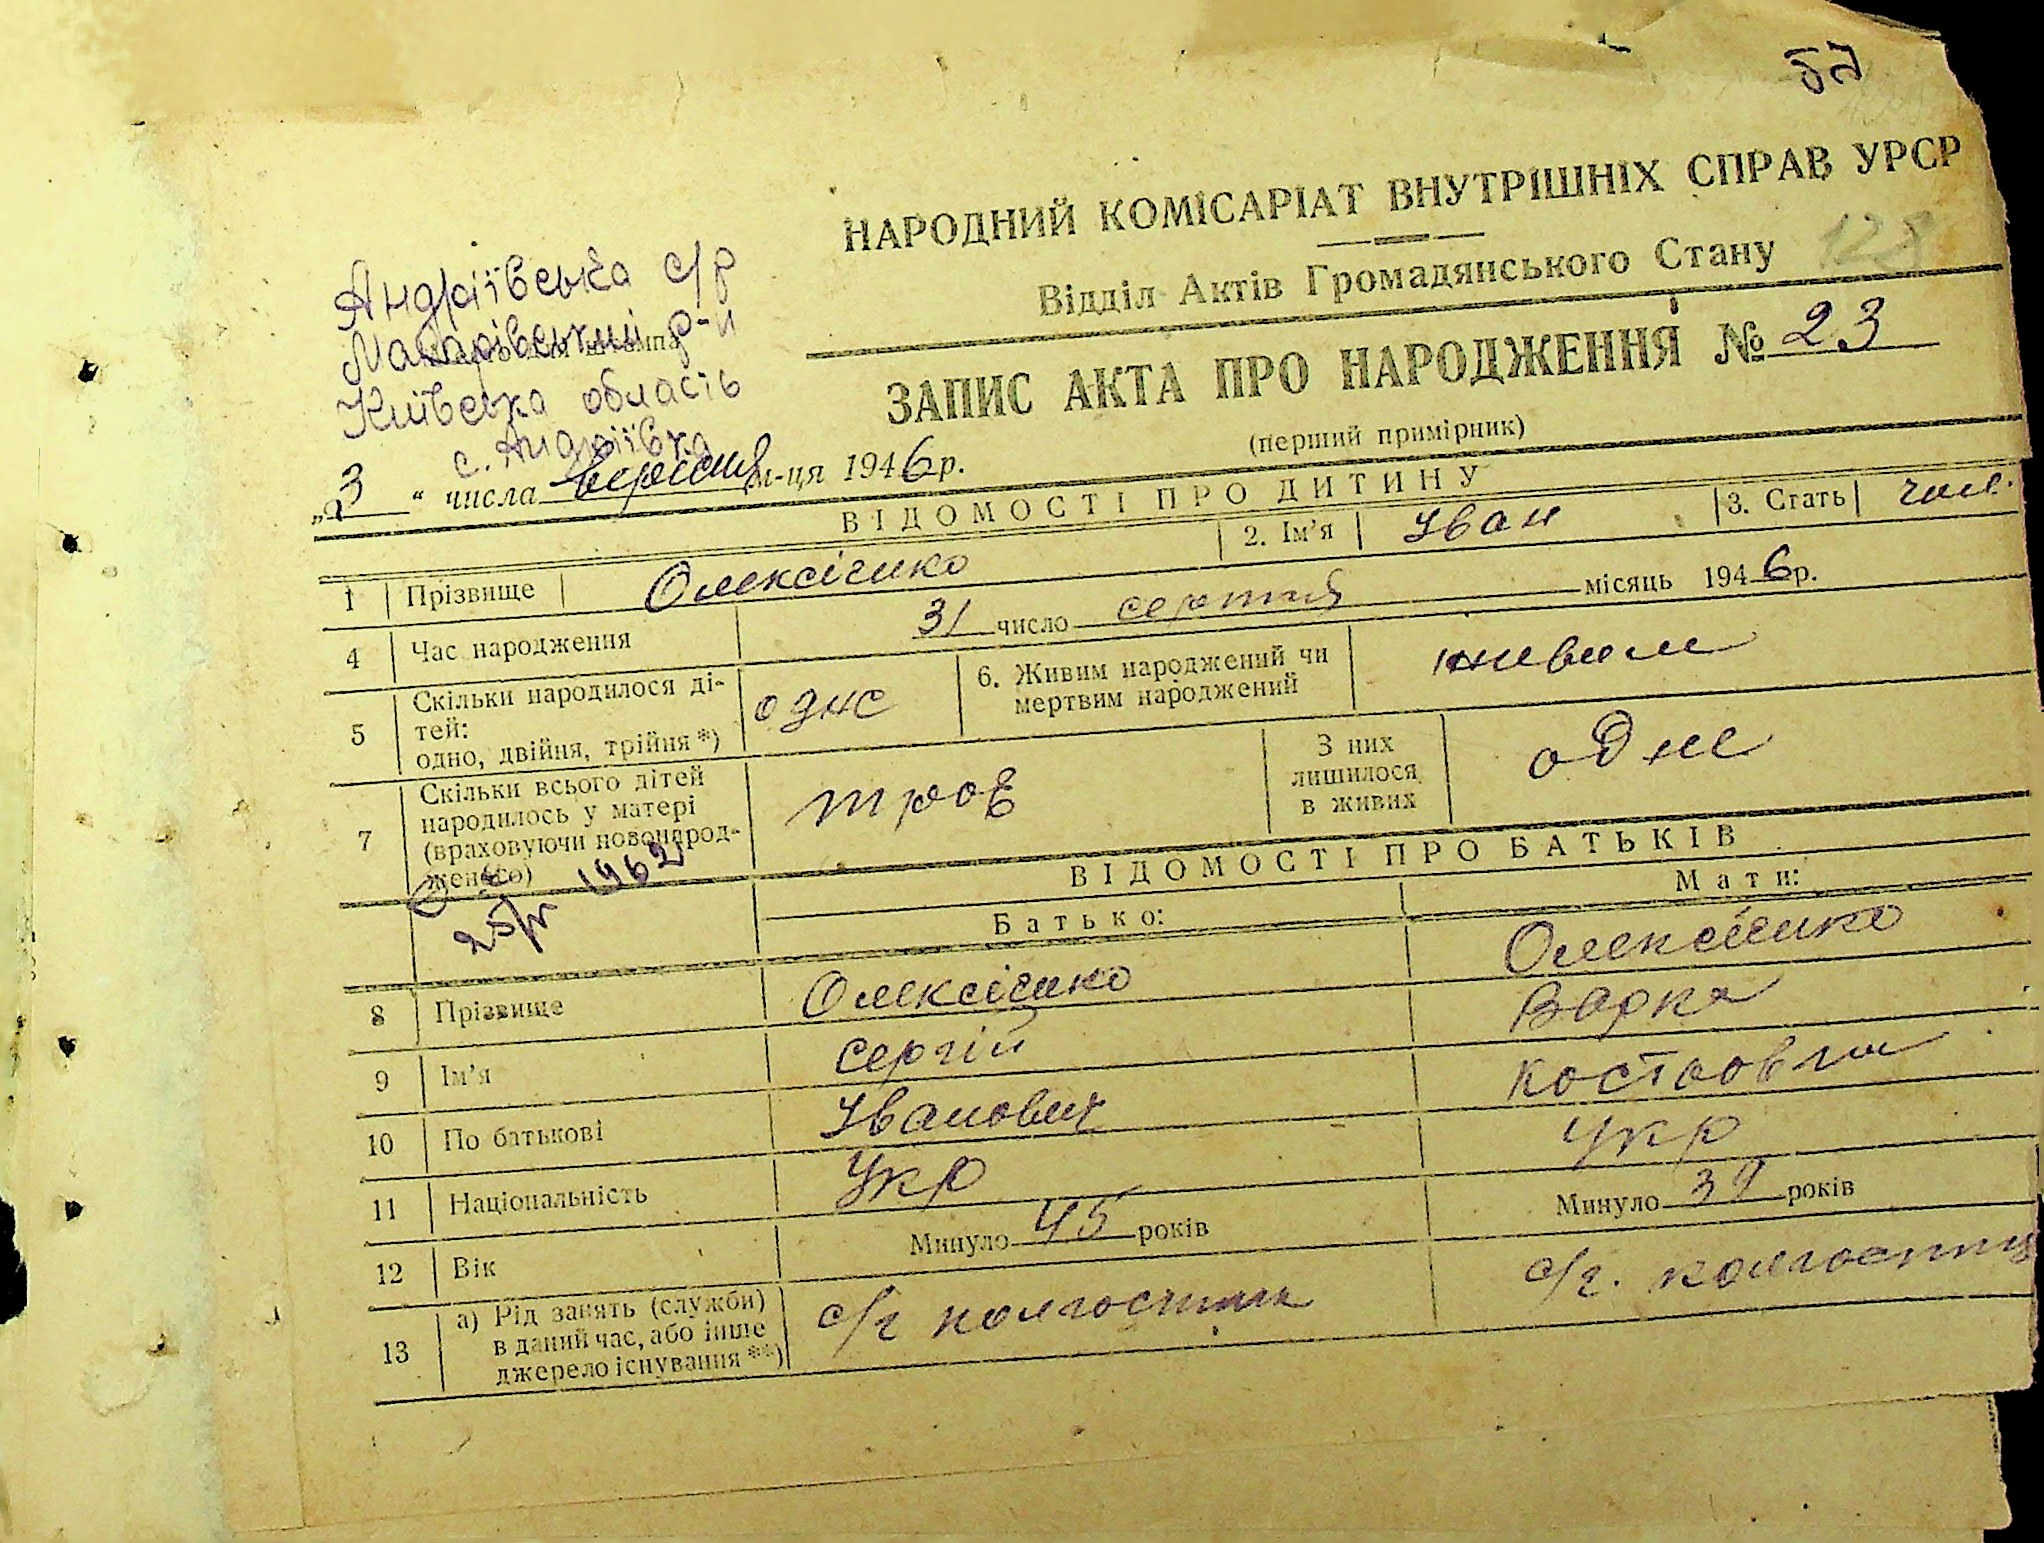 128
НАРОДНИЙ КОМІСАРІАТ ВНУТРІШНІХ СПРАВ УРСР
Відділ Актів Громадянського Стану
Андріївська с/р
Макарівський р-н
Київська область
с. Андріївка
ЗАПИС АКТА ПРО НАРОДЖЕННЯ № 23
(перший примірник)
„3“ числа вересня м-ця 1946 р.
ВІДОМОСТІ ПРО ДИТИНУ
1 Прізвище Олексієнко 2. Ім'я Іван 3. Стать чол.
4 Час народження 31 число серпня місяць 1946 р.
5 Скільки народилося ді-
тей:
одно, двійня, трійня *) одно 6. Живим народжений чи
мертвим народжений живим
7 Скільки всього дітей
народилось у матері
(враховуючи новонарод-
женого) троє З них
лишилося
в живих одне
1962
ВІДОМОСТІ ПРО БАТЬКІВ
Батько: Мати:
8 Прізвище Олексієнко Олексієнко
9 Ім'я Сергій Варка
10 По батькові Іванович
11 Національність Укр Укр
12 Вік Минуло 45 років Минуло 39 років
13 а) Рід занять (служби)
в даний час, або інше
джерело існування **) с/г колгоспник с/г. колгоспниц